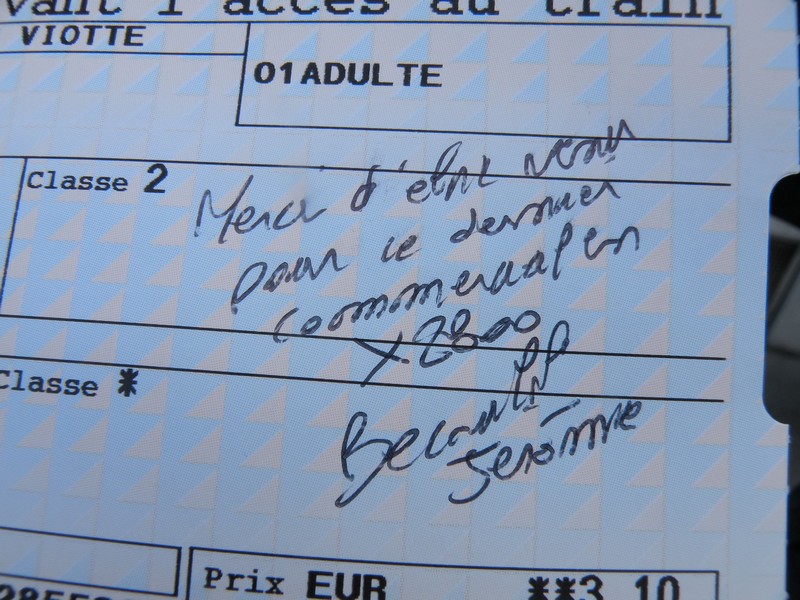 vant l'accès au train
VIOTTE
01ADULTE
Classe 2
Merci d'être venu
pour ce dernier
commercial en
X2800
Classe *
Jerôme
Prix EUR **3.10